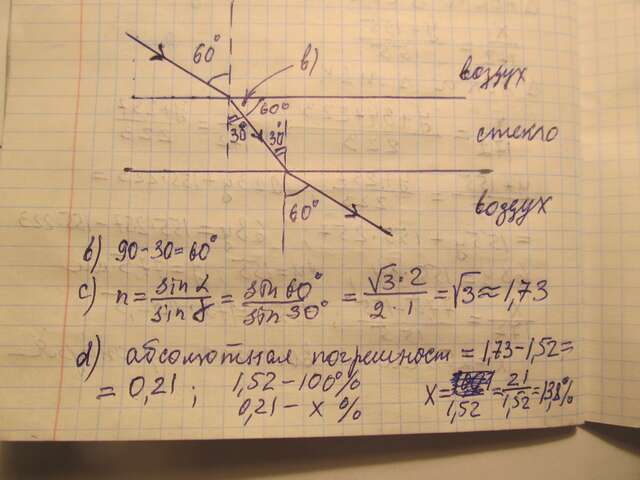 60°
в)
воздух
60°
30° 30°
стекло
60°
воздух
в) 90-30=60°
c) n = sin α / sin γ = sin 60° / sin 30° = √3·2 / 2·1 = √3 ≈ 1,73
d) абсолютная погрешност = 1,73-1,52=
= 0,21 ; 1,52 - 100%
0,21 - x %
x= / 1,52 = 21 / 1,52 = 13,8%